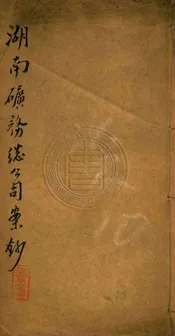 湖南礦務總公司案鈔